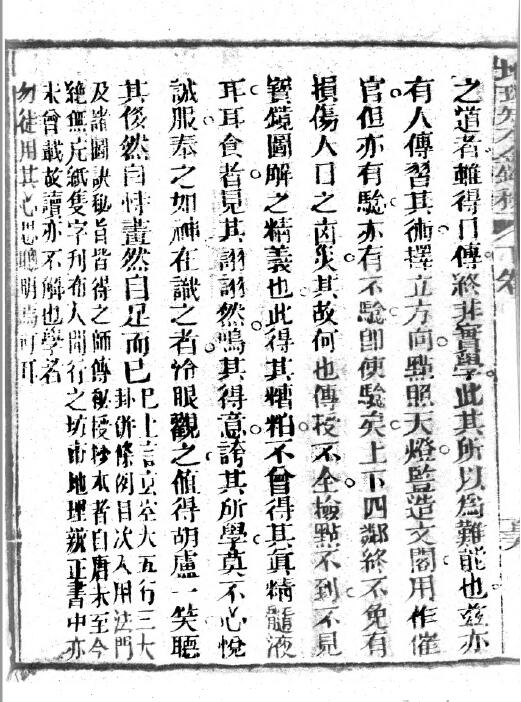 之道者雖得口傳終非實學此其所以為難能也茲亦
有人傳習其術擇立方向點照天燈監造文閣用作催
官但亦有驗亦有不驗即使驗矣上下四鄰終不免有
損傷人口之菑災其故何也傳授不全檢點不到不見
寶鏡圖解之精義也此得其糟粕不曾得其眞精髓液
耳耳食者見其詡詡然鳴其得意誇其所學莫不心悅
誠服奉之如神在識之者冷眼觀之值得胡盧一笑聽
其後然自恃畫然自足而已
已上言玄空大五行三大
卦併條例目次入用法門
及諸圖訣秘旨皆得之師傳秘授抄本者自唐末至今
絶無片紙隻字刊布人間行之坊市地理辨正書中亦
未曾載故讀亦不解也學者
勿徒用其心思聰明焉可耳